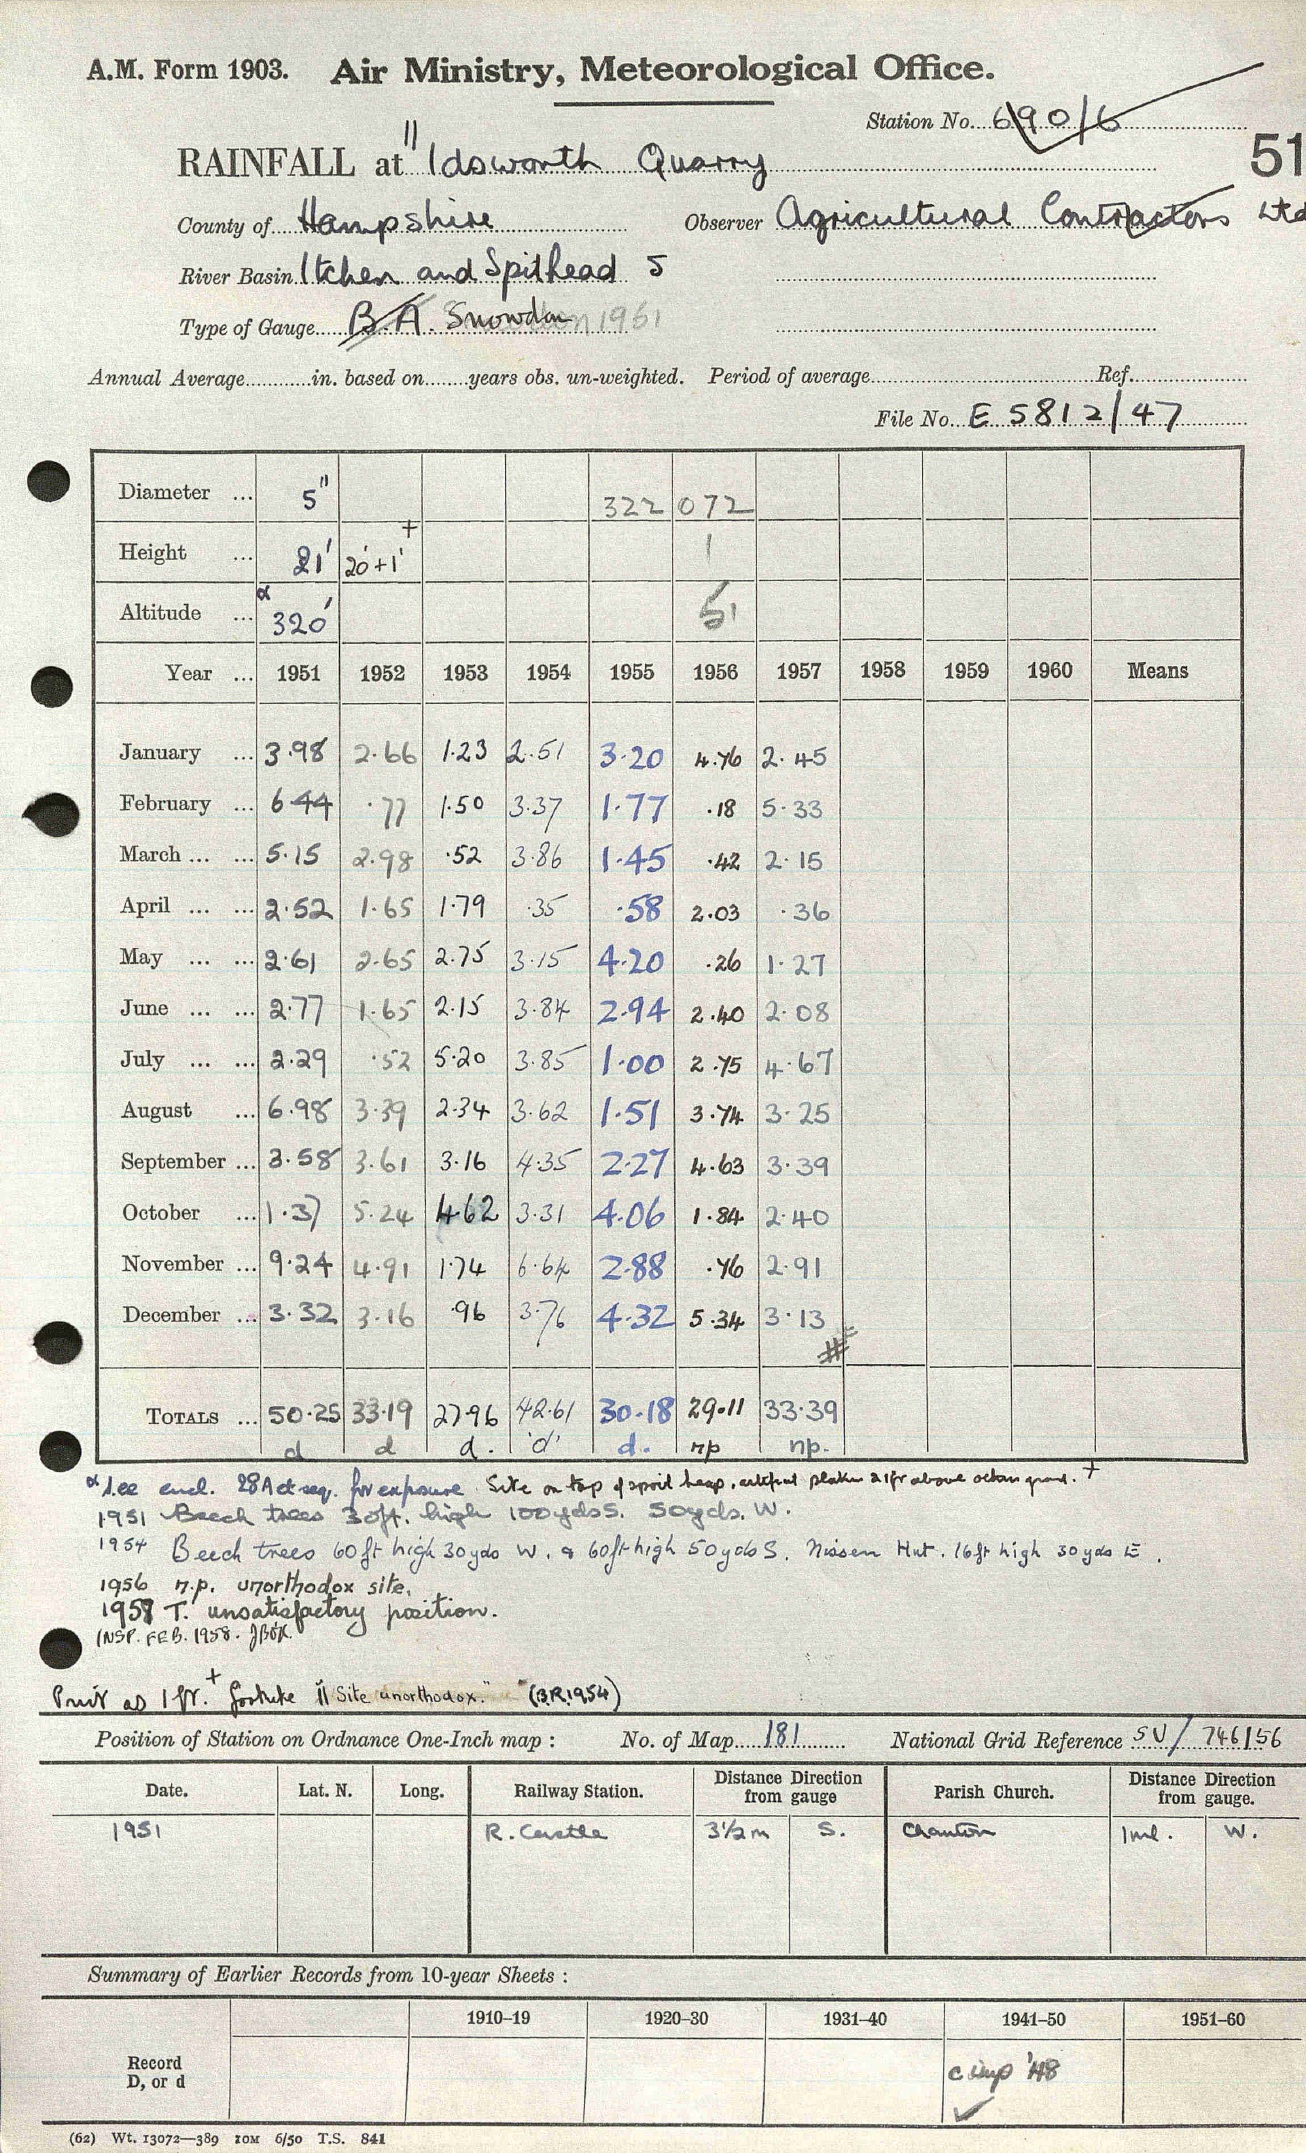 A.M. Form 1903. Air Ministry, Meteorological Office.
Station No. 690/6
RAINFALL at "Idsworth Quarry
51
County of Hampshire Observer Agricultural Contractors Ltd
River Basin Itchen and Spithead 5
Type of Gauge B.A. Snowdon 1951
Annual Average in. based on years obs. un-weighted. Period of average Ref.
File No. E 5812/47
Diameter ... 5" 322 072
Height ... 21' 20'+1' + 1
Altitude ... α 320' 51
Year ... 1951 1952 1953 1954 1955 1956 1957 1958 1959 1960 Means
January ... 3.98 2.66 1.23 2.51 3.20 4.76 2.45
February ... 6.44 .77 1.50 3.37 1.77 .18 5.33
March ... ... 5.15 2.98 .52 3.86 1.45 .42 2.15
April ... ... 2.52 1.65 1.79 .35 .58 2.03 .36
May ... ... 2.61 2.65 2.75 3.15 4.20 .26 1.27
June ... ... 2.77 1.65 2.15 3.84 2.94 2.40 2.08
July ... ... 2.29 .52 5.20 3.85 1.00 2.75 4.67
August ... 6.98 3.39 2.34 3.62 1.51 3.74 3.25
September ... 3.58 3.61 3.16 4.35 2.27 4.63 3.39
October ... 1.37 5.24 4.62 3.31 4.06 1.84 2.40
November ... 9.24 4.91 1.74 6.64 2.88 .76 2.91
December ... 3.32 3.16 .96 3.76 4.32 5.34 3.13
#
TOTALS ... 50.25 33.19 27.96 42.61 30.18 29.11 33.39
d d d. 'd' d. np np.
α See encl. 28A et seq. for exposure Site on top of spoil heap, 21ft above ground. +
1951 Beech trees 30ft. high 100yds S. 50yds. W.
1954 Beech trees 60ft high 30yds W. & 60ft high 50yds S. Nissen Hut. 16ft high 30yds E.
1956 n.p. unorthodox site.
1957 T. unsatisfactory position.
INSP. FEB. 1958.
Print as 1 ft. + footnote "Site unorthodox." (B.R.1954)
Position of Station on Ordnance One-Inch map : No. of Map 181 National Grid Reference SU/ 746156
Date. Lat. N. Long. Railway Station. Distance from gauge Direction Parish Church. Distance Direction from gauge.
1951 R. Castle 3½m S. Chalton 1ml. W.
Summary of Earlier Records from 10-year Sheets :
1910–19 1920–30 1931–40 1941–50 1951–60
Record
D, or d
comp '48
(62) Wt. 13072—389 20M 6/50 T.S. 841